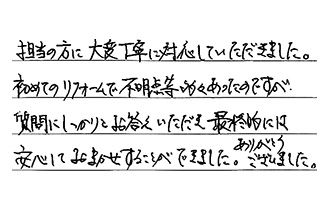 担当の方に大変丁寧に対応していただきました。
初めてのリフォームで不明点等多々あったのですが
質問にしっかりとお答えいただき最終的には
安心しておまかせすることができました。ありがとうございました。